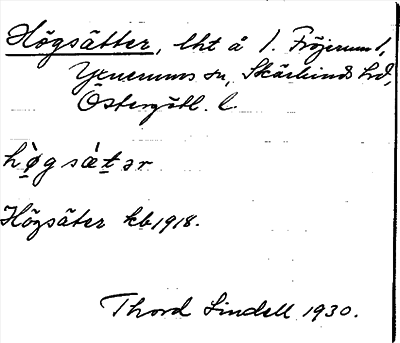 Högsätter, lht å l. Fröjerum 1,
Yxnerums sn, Skärkinds hd,
Östergötl. l.
hø̀gsæ̀tər
Högsäter kb 1918.
Thord Lindell 1930.